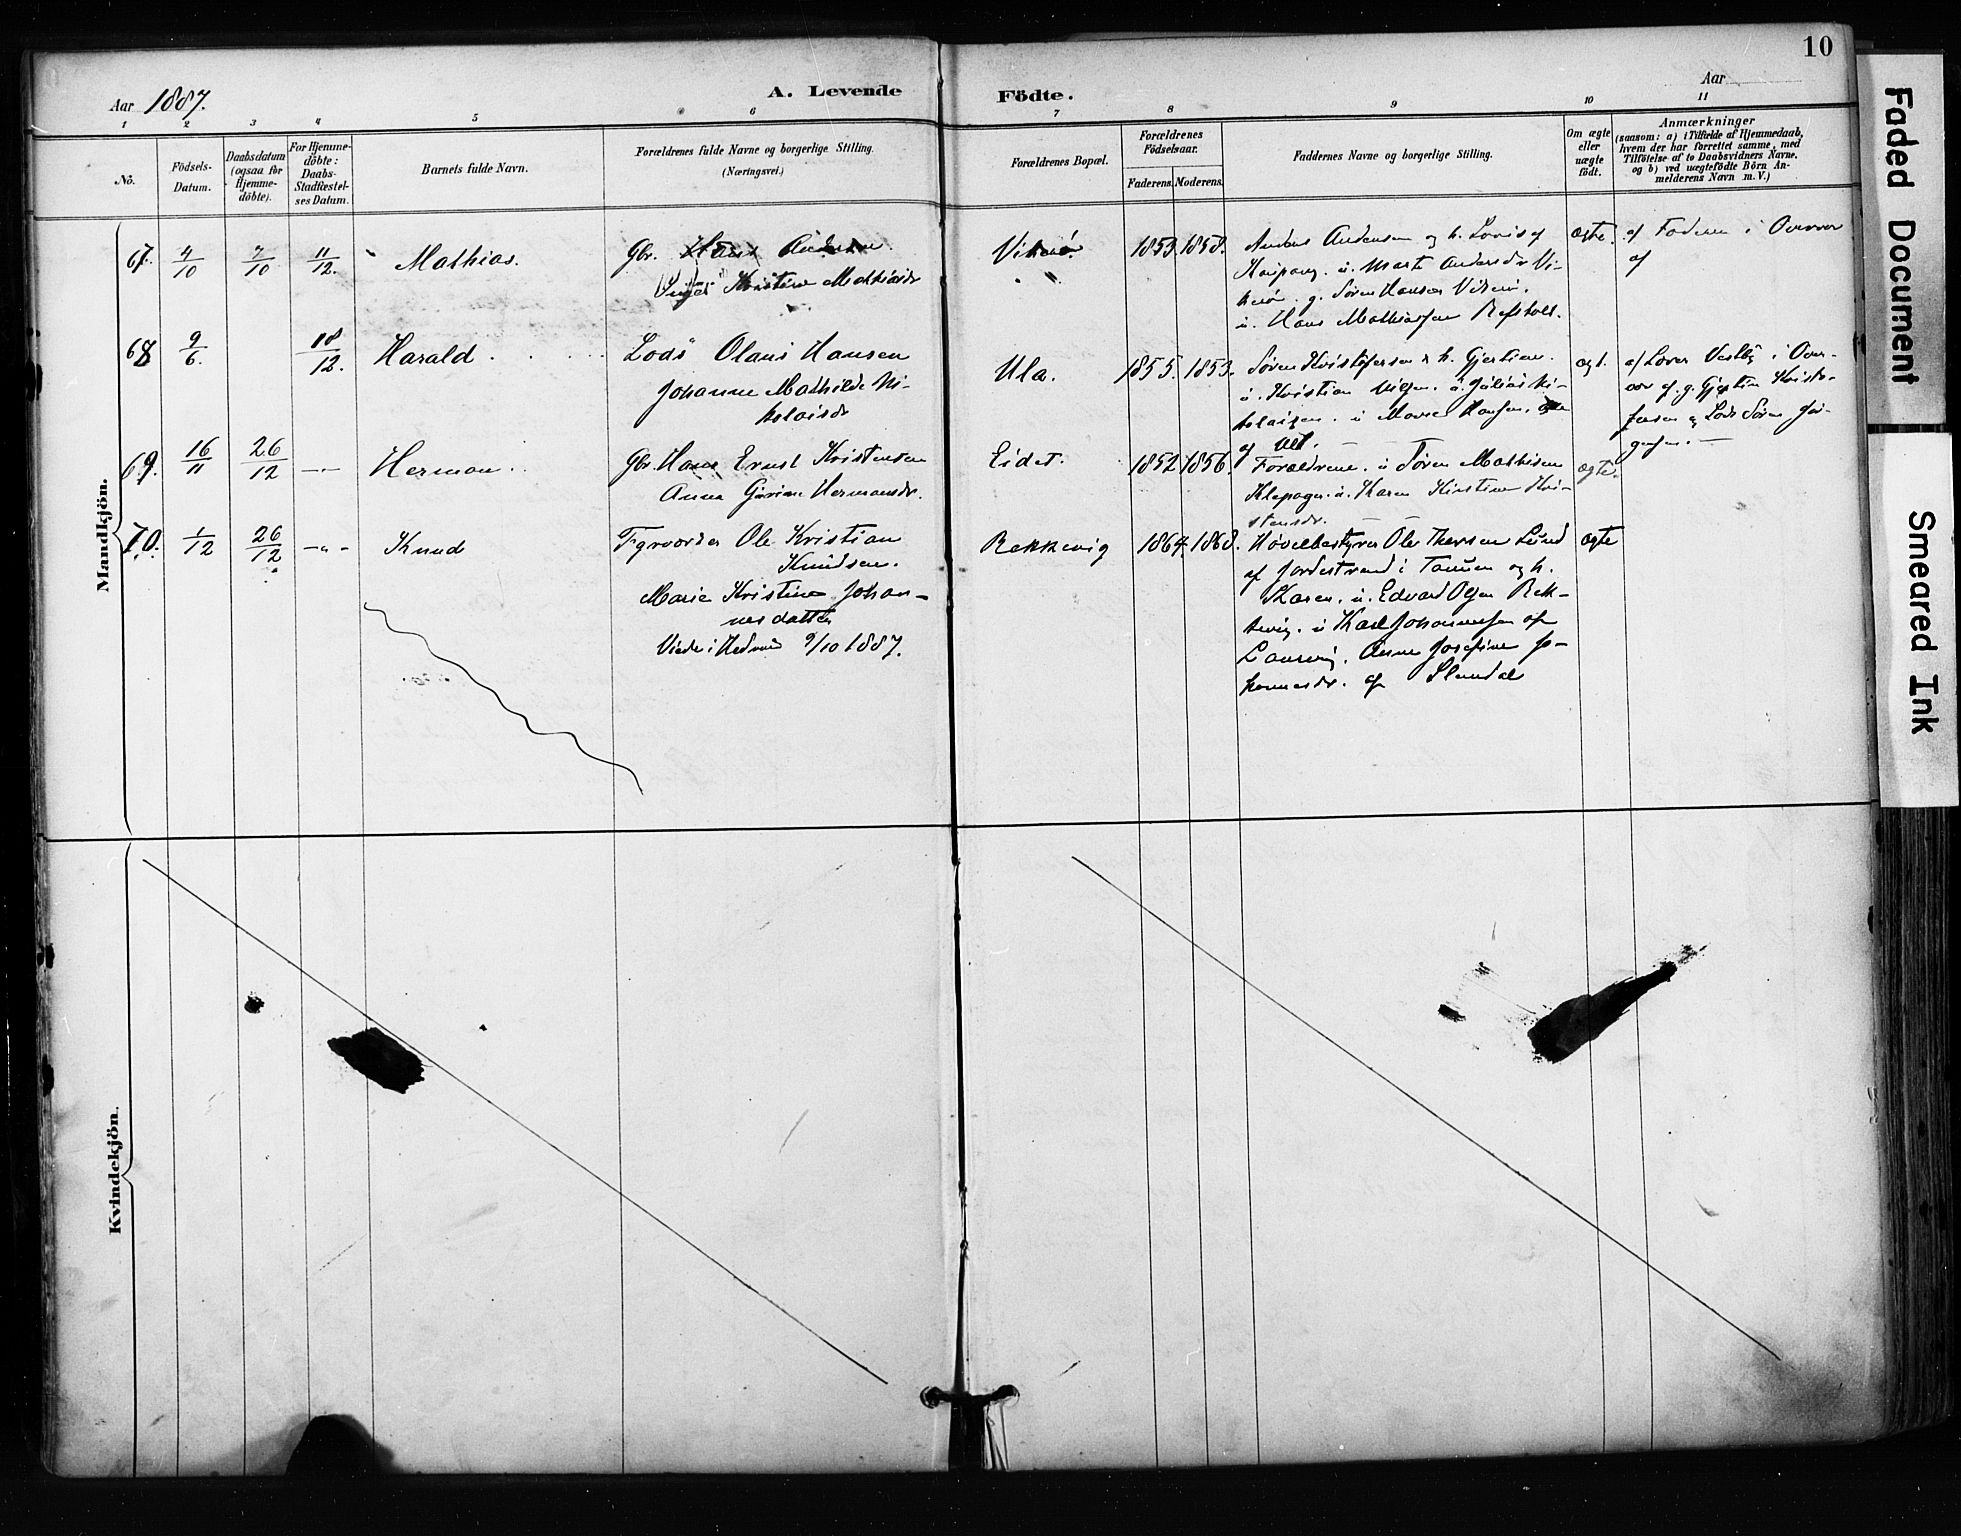 10
Aar 1887.
A. Levende
Födte.
Aar
1 2 3 4 5 6 7 8 9 10 11
No.
Födsels-
Datum.
Daabsdatum
(ogsaa for
Hjemme-
döbte).
For Hjemme-
döbte:
Daabs-
Stadfæstel-
ses Datum.
Barnets fulde Navn.
Forældrenes fulde Navne og borgerlige Stilling.
(Næringsvei.)
Forældrenes Bopæl.
Forældrenes
Födselsaar.
Faderens.
Moderens.
Faddernes Navne og borgerlige Stilling.
Om ægte
eller
uægte
födt.
Anmærkninger
(saasom: a) i Tilfælde af Hjemmedaab,
hvem der har forrettet samme, med
Tilföielse af to Daabsvidners Navne,
og b) ved uægtefödte Börn An-
melderens Navn m. V.)
Mandkjön.
67. 4/10 7/10 11/12. Mathias.
Gbr. Hans Andersen.
Kristine Mathiasdr
1853. 1858.
Anders Andersen og h. Lovis af
Kaupang. u. Marte Andersdr Vi-
g. Søren Hansen
u. Hans Mathiassen
ægte.
af Faderen i
af
68 9/6. 18/12. Harald
Lods Olaus Hansen
Johanne Mathilde Ni-
kolaisdr
Ula.
1855. 1853.
Søren Kristofersen & h.
u. Kristian u. Julius Ni-
kolaisen. u Hansen.
af Ula.
ægt.
af i Over-
af g. Kristo-
fersen & Lods Søren Jør-
gensen.
69. 16/11 26/12 -"- Herman.
Gbr. Hans Ernst Kristensen
Anna Hermansdr.
Eidet.
1852. 1856.
Forældrene. u Søren Mathisen
u. Karen Kirstine Kri-
stensdr.
ægte.
70. 1/12 26/12 -"- Knud
Fyrvogter Ole Kristian
Knudsen.
Marie Kristine Johan-
nesdatter
Viede i 9/10 1887.
Rekkevig
1864. 1868.
Ole Lund
af i og h.
Karen. u. Edvard Olsen Rek-
kevig. u Karl Johannessen af
Laurvig. Anne Josefine Jo-
hannesdr. af
ægte
Kvindekjön.
Faded Document
Smeared Ink